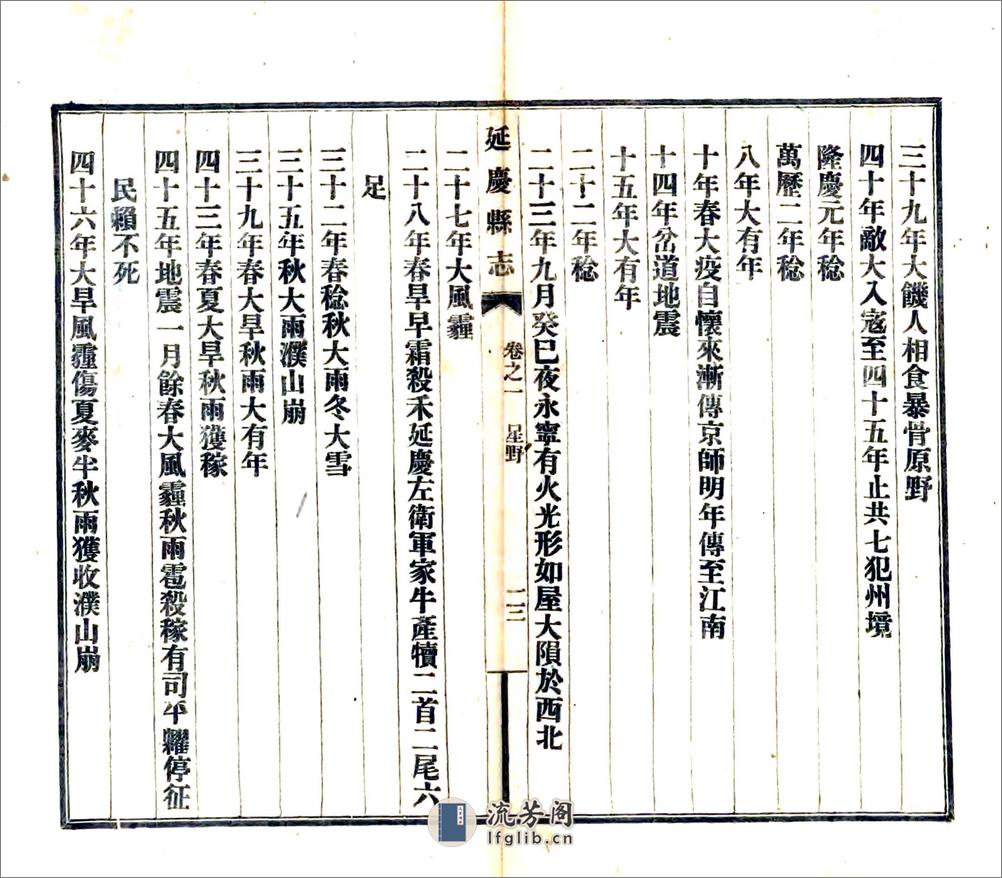 三十九年大饑人相食暴骨原野
四十年敵大入寇至四十五年止共七犯州境
隆慶元年稔
萬歷二年稔
八年大有年
十年春大疫自懷來漸傳京師明年傳至江南
十四年岔道地震
十五年大有年
二十二年稔
二十三年九月癸巳夜永寧有火光形如屋大隕於西北
延慶縣志
卷之一
星野
二三
二十七年大風霾
二十八年春旱早霜殺禾延慶左衛軍家牛產犢二首二尾六
足
三十二年春稔秋大雨冬大雪
三十五年秋大雨濮山崩
三十九年春大旱秋雨大有年
四十三年春夏大旱秋雨獲稼
四十五年地震一月餘春大風霾秋雨雹殺稼有司平糶停征
民賴不死
四十六年大旱風霾傷夏麥半秋雨獲收濮山崩
流芳阁
lfglib.cn